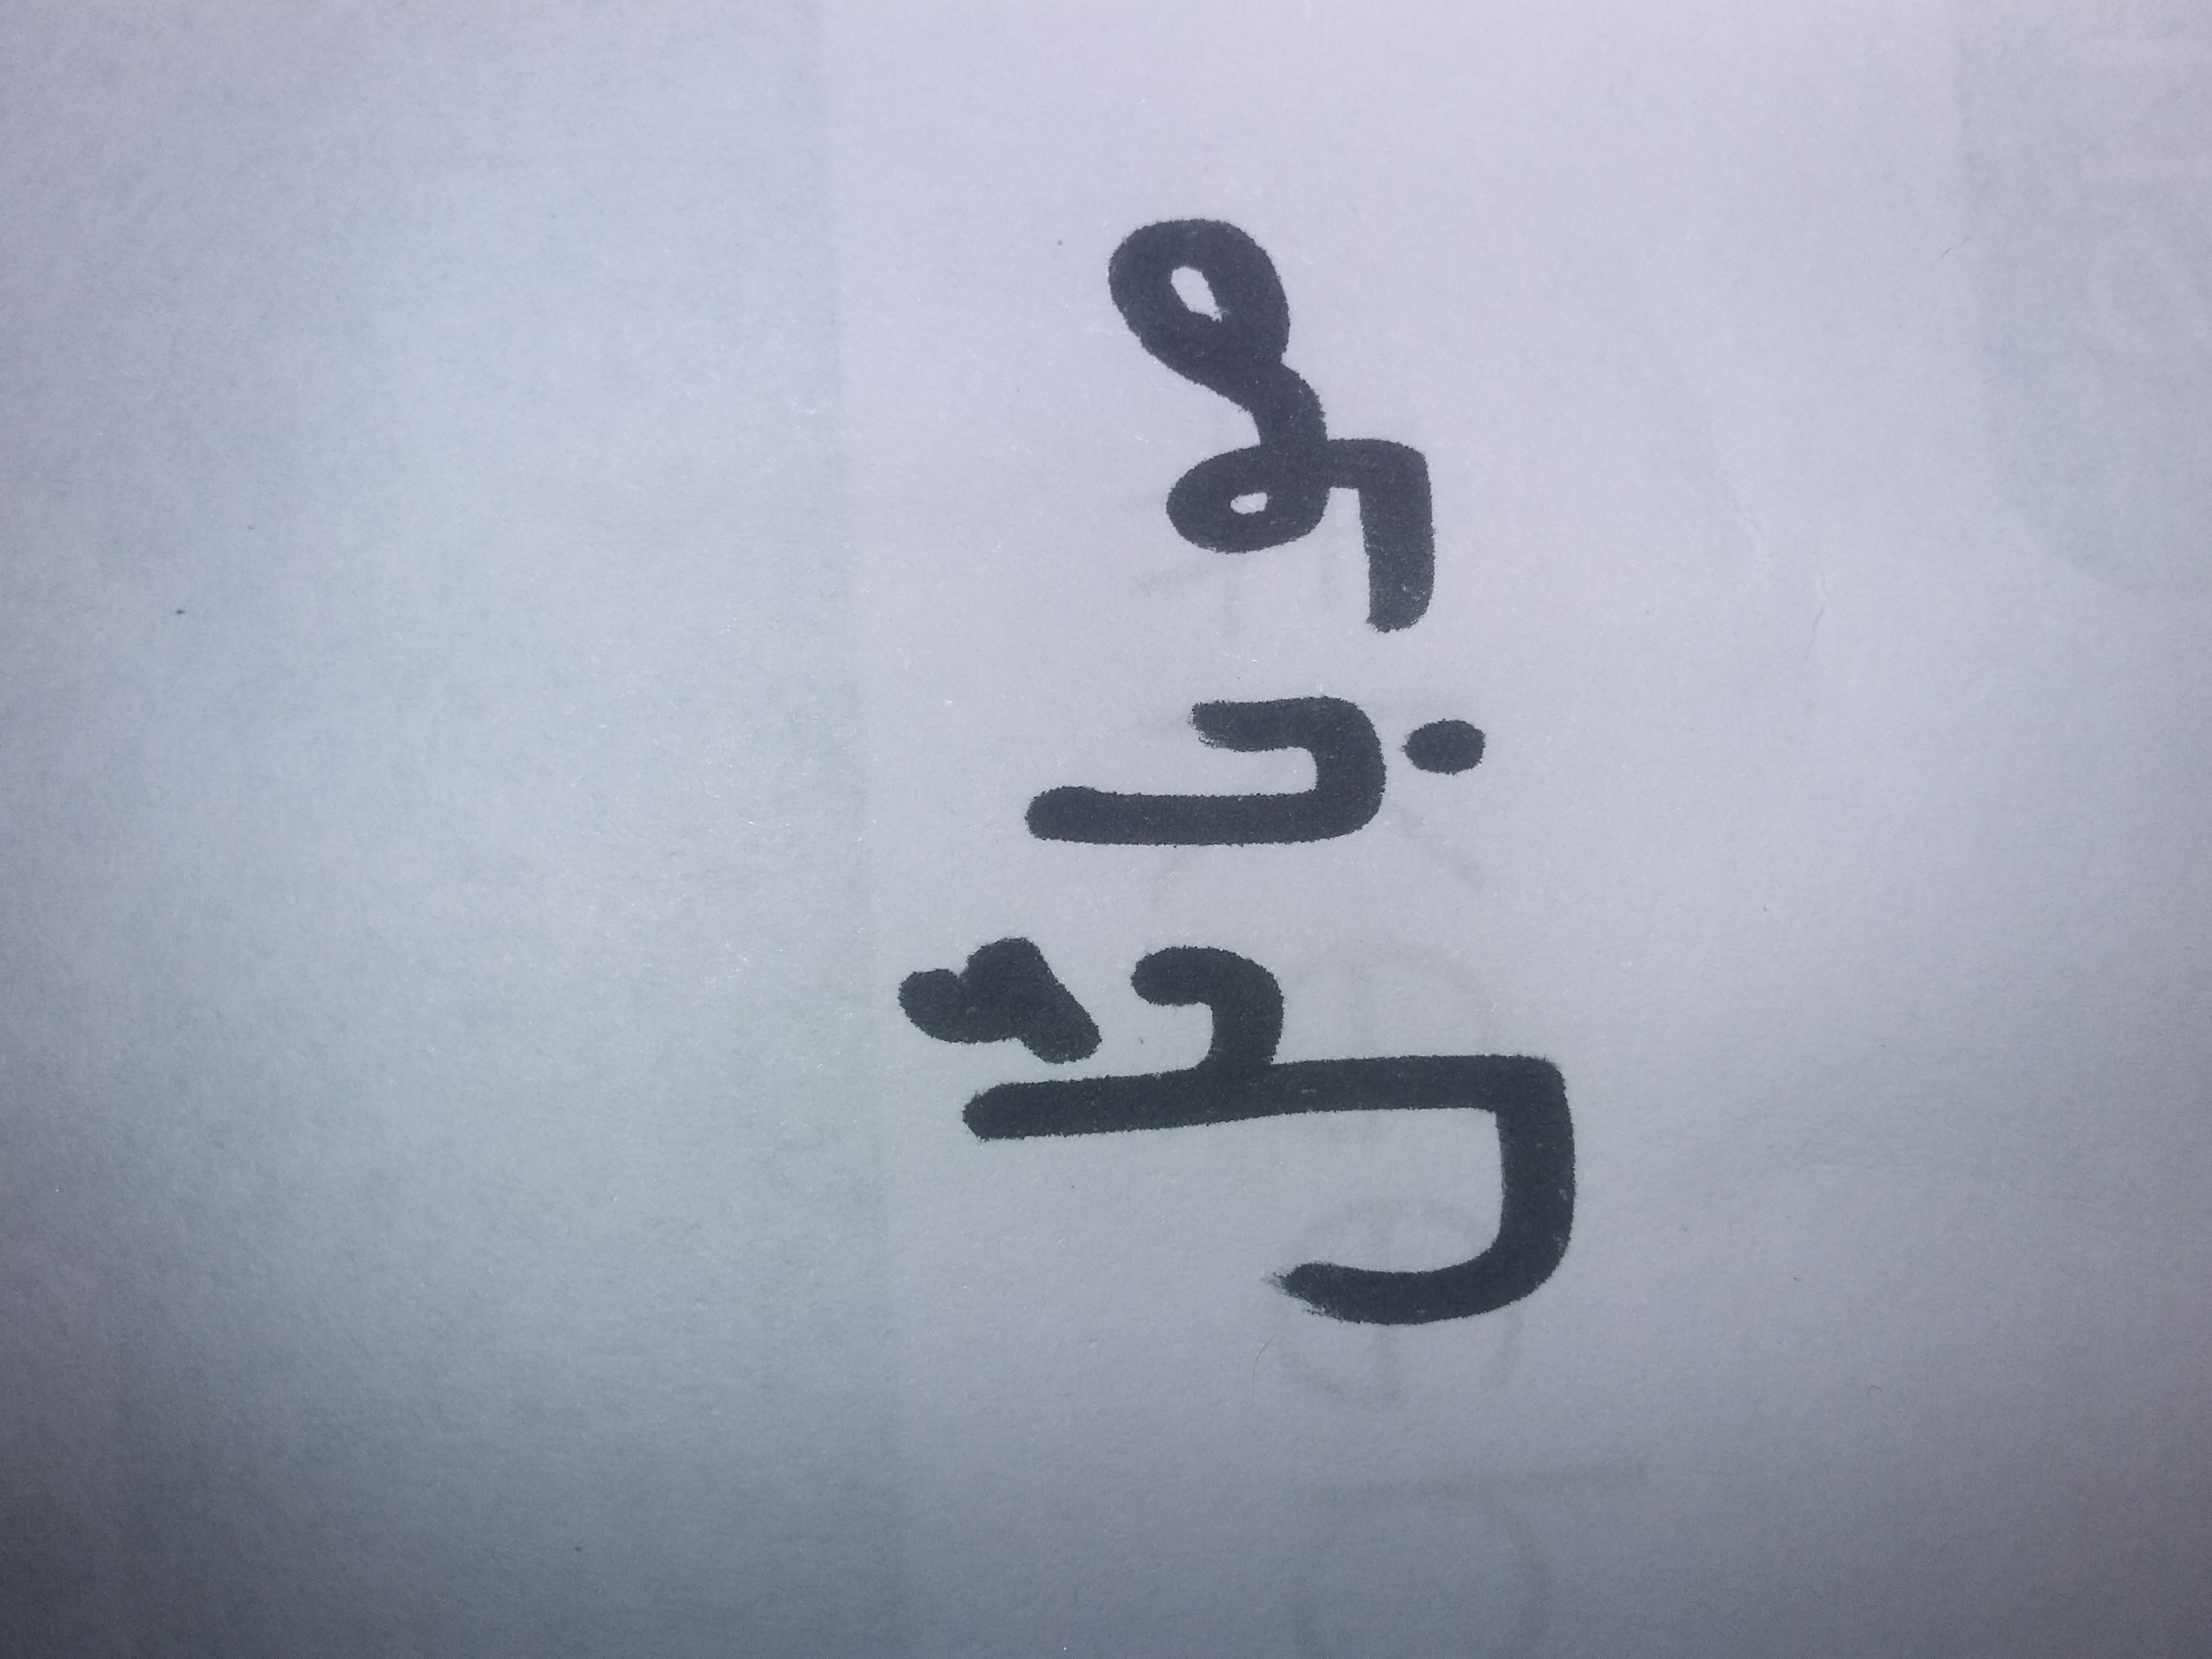 موبائل